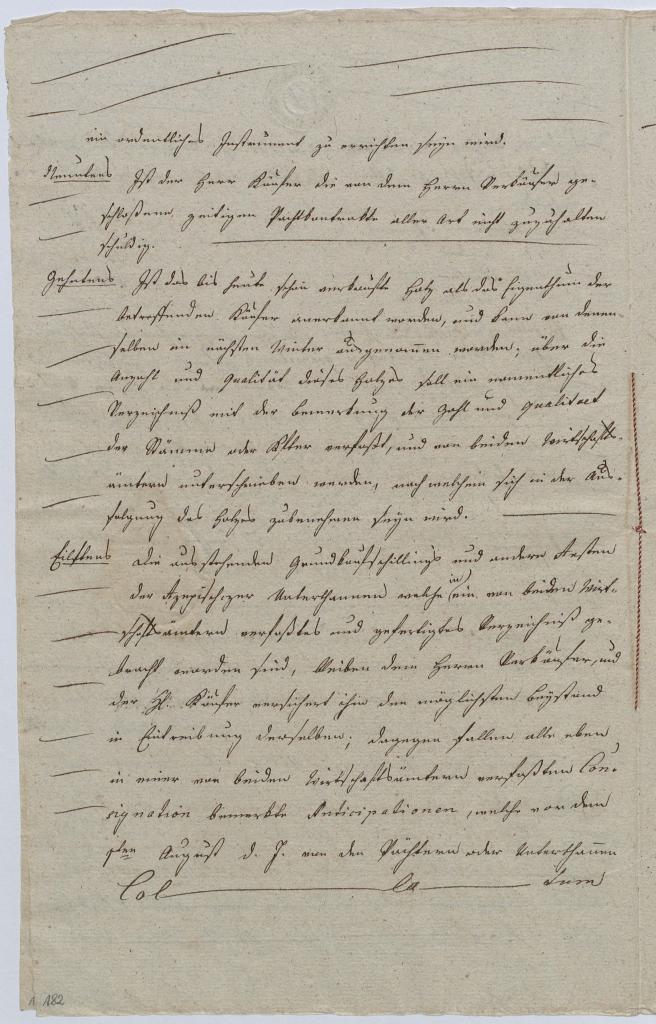 ein ordentliches Instrument zu errichten seyn wird.
Neuntens Ist der Herr Käufer die von dem Herrn Verkäufer ge-
schloßene zeitigen Pachtkontrakte aller Art nicht zuzuhalten
schuldig.
Zehntens. Ist das bis heute schon verkaufte Holz als das Eigenthum der
betreffenden Käufer anerkannt worden, und kann von denen
selben im nächsten Winter ausgenommen werden; über die
Anzahl und Qualität dieses Holzes soll ein namentliches
Verzeichniß mit der bemerkung der Zahl und qualitaet
der Stämme oder Klfter verfaßt, und von beiden Wirtschafts-
ämtern unterschrieben werden, nach welchem sich in der Aus-
folgung des Holzes zubenehmen seyn wird.
Eilftens Die ausstehenden Grundkaufschillings und andern Resten
der Unterthannen welche in ein von beiden Wirt-
schaftsämtern verfaßtes und gefertigtes Verzeichniß ge-
bracht worden sind, bleiben dem Herrn Verkäufer, und
der H. Käufer versichert ihm den möglichsten Beystand
in Eintreibung derselben; dagegen fallen alle eben
in einer von beiden Wirtschaftsämtern verfaßten Con-
signation bemerkte Anticipationen, welche vor dem
1ten August d. J. von den Pächtern oder Unterthannen
Col la tum
1 182